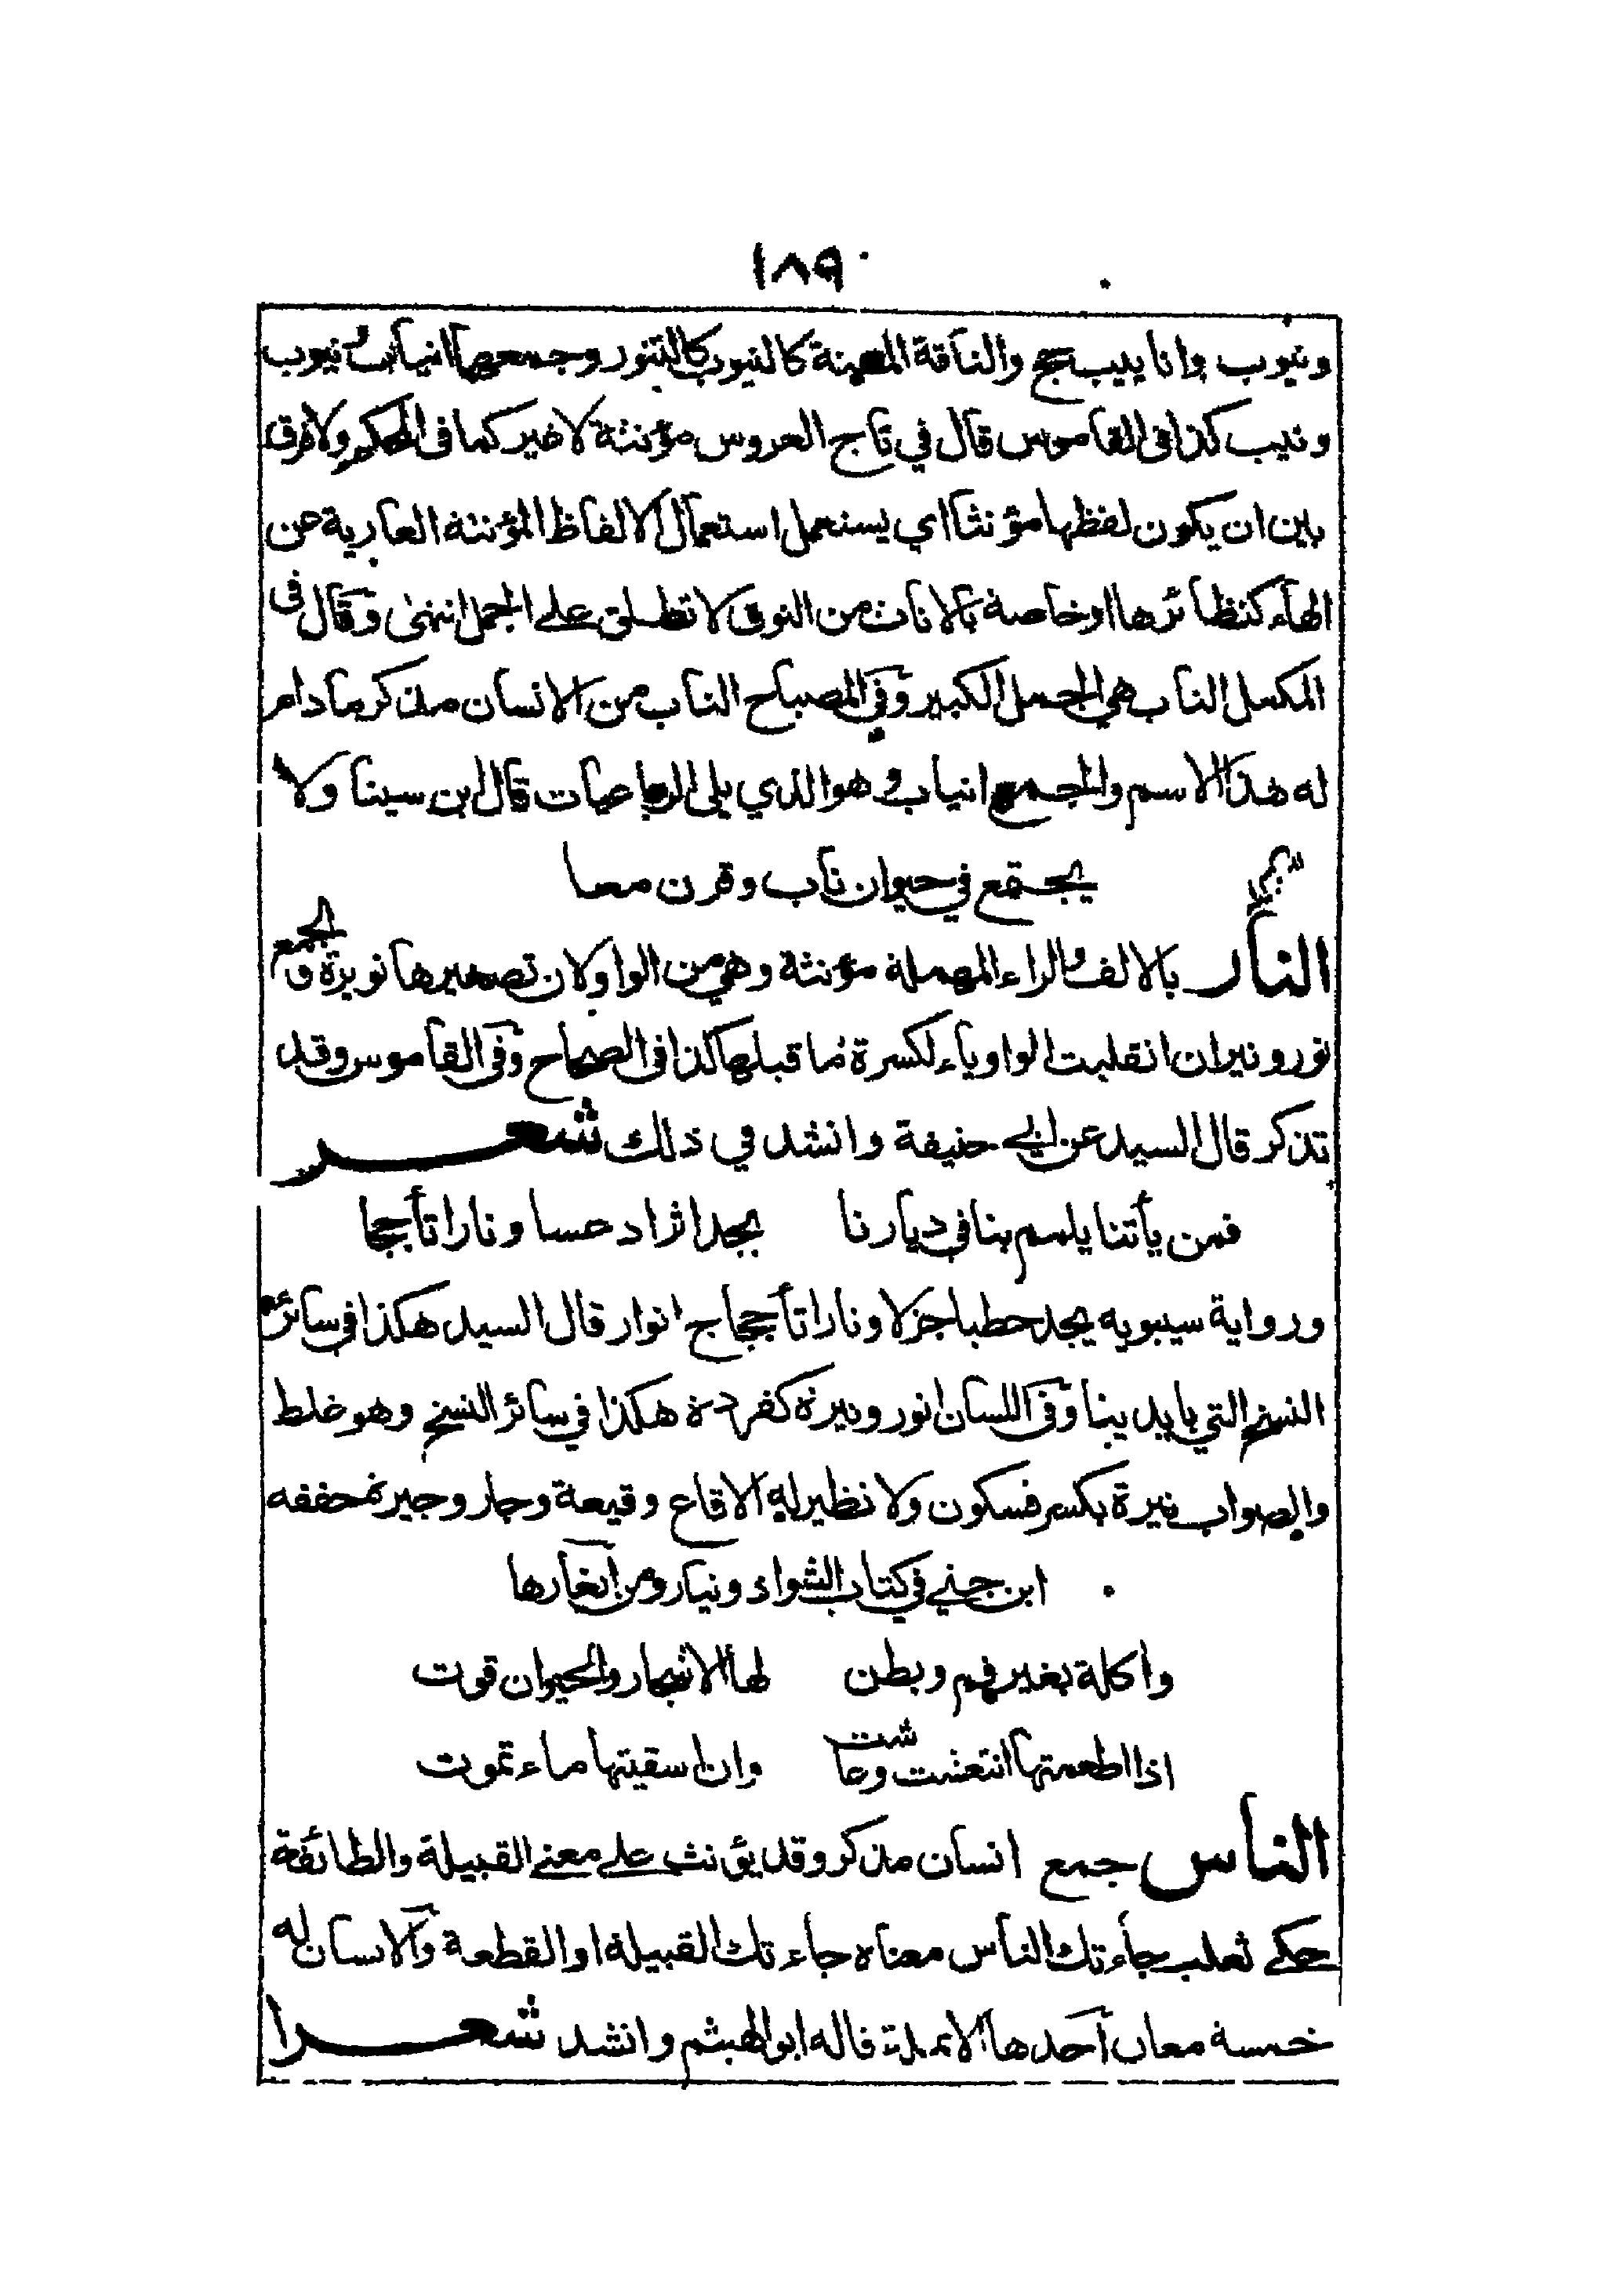 ١٨٩
ونيوب وانا ييب جج والناقة المسنة كالنيوب كالتنور وجمعها انياب ونيوب
ونيب كذا فى القاموس قال في تاج العروس مؤنثة لا غير كما فى المحكم ولا فرق
بين ان يكون لفظها مؤنثا اي يستعمل استعمال الالفاظ المؤنثة العارية عن
الهاء كنظائرها او خاصة بالاناث من النوق لا تطلق على الجمل انتهى وقال فى
المكمل الناب هي الجمل الكبير وفي المصباح الناب من الانسان مذكر ما دام
له هذا الاسم والجمع انياب وهو الذي يلى الرباعيات قال ابن سينا ولا
يجتمع في حيوان ناب وقرن معا
النار بالالف والراء المهملة مؤنثة وهي من الواو لان تصغيرها نويرة والجمع
نور ونيران انقلبت الواو ياء لكسرة ما قبلها كذا فى الصحاح وفى القاموس وقد
تذكر قال السيد عن ابي حنيفة وانشد في ذلك شعر
فمن يأتنا يلمم بنا في ديارنا يجد اثرا دعسا ونارا تأججا
ورواية سيبويه يجد حطبا جزلا ونارا تأججا ج انوار قال السيد هكذا في سائر
النسخ التي بايدينا وفى اللسان انور ونيرة كفردة هكذا في سائر النسخ وهو غلط
والصواب نيرة بكسر فسكون ولا نظير له الا قاع وقيعة وجار وجيرة حققه
ابن جني في كتاب الشواذ ونيار ومن الغازها
واكلة بغير فم وبطن لها الاشجار والحيوان قوت
اذا اطعمتها انتعشت وعاشت وان اسقيتها ماء تموت
الناس جمع انسان مذكر وقد يؤنث على معنى القبيلة والطائفة
حكى ثعلب جاءتك الناس معناه جاءتك القبيلة او القطعة والانسان له
خمسة معان احدها الانملة قاله ابو الهيثم وانشد شعرا